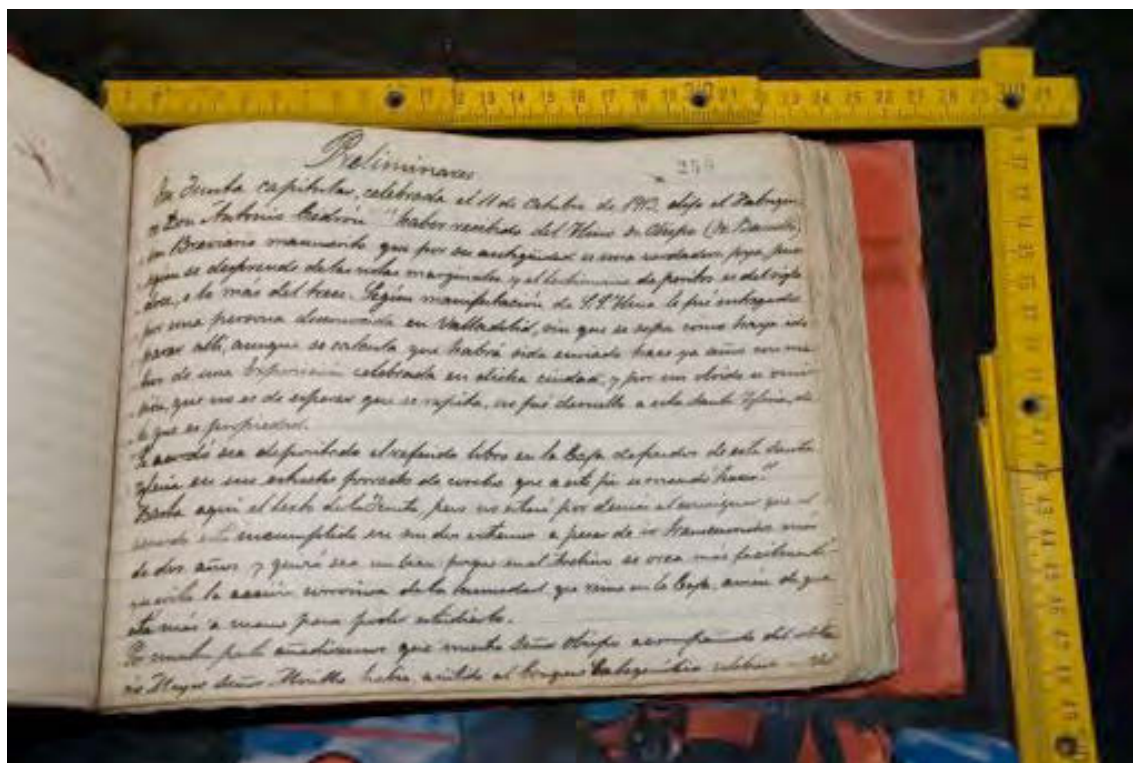 Preliminares
255
En Junta capitular, celebrada el 11 de Octubre de 1913, dijo el
Don Antonio Cedrón "haber recibido del Ilmo Sr. Obispo (Dr. Basulto)
un Breviario manuscrito que por su antigüedad es una verdadera joya, pues
según se desprende de las notas marginales y el testimonio de peritos es del siglo
doce, o lo más del trece. Según manifestación de S.S. Ilma le fué entregado
por una persona desconocida en Valladolid, sin que se sepa como haya ido
parar allí, aunque se calcula que habrá sido enviado hace ya años con
de una Exposición celebrada en dicha ciudad, y por un olvido u omi
sión, que no es de esperar que se repita, no fué devuelto a esta Santa Iglesia, de
la que es propiedad.
Se acordó sea depositado el referido libro en la Caja de fondos de esta Santa
Iglesia en un estuche provisto de corchos que a este fin se mande hacer."
Hasta aquí el texto de la Junta, pero no estará por demás el consignar que el
acuerdo está incumplido en sus dos extremos a pesar de ir transcurridos más
de dos años y quizá sea un bien porque en el Archivo se orea más facilmente
se evita la acción corrosiva de la humedad que reina en la Caja, amén de que
está más a mano para poder estudiarlo.
añadiremos que nuestro Señor Obispo acompañado del
Señor había asistido al Congreso Catequístico